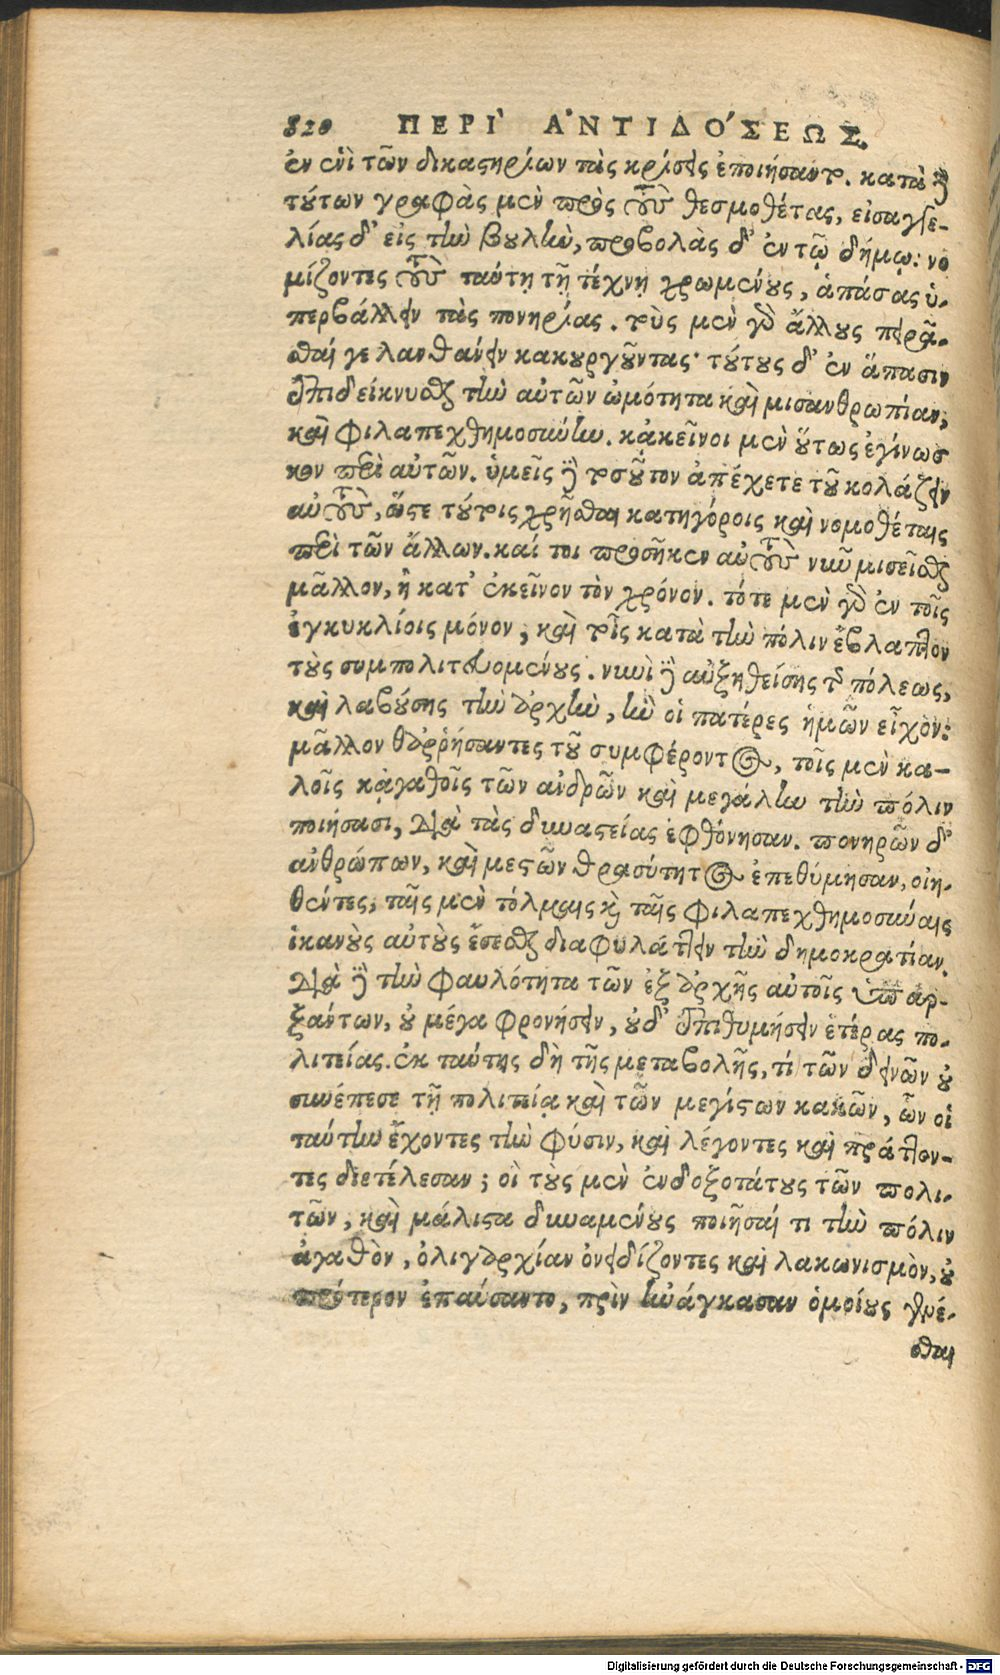 820 ΠΕΡῚ ἈΝΤΙΔΌΣΕΩΣ.
ἐν ἑνὶ τῶν δικαστηρίων τὰς κρίσεις ἐποιήσαντο. κατὰ δὲ
τούτων γραφὰς μὲν πρὸς τοὺς θεσμοθέτας, εἰσαγγε-
λίας δ' εἰς τὴν βουλὴν, προβολὰς δ' ἐν τῷ δήμῳ: νο
μίζοντες τοὺς ταύτῃ τῇ τέχνῃ χρωμένους, ἁπάσας ὑ-
περβάλλειν τὰς πονηρίας. τοὺς μὲν γὸ ἄλλους πειρᾶ-
σθαί γε λανθάνειν κακουργοῦντας· τούτους δ' ἐν ἅπασιν
ἐπιδείκνυσθαι τὴν αὑτῶν ὠμότητα καὶ μισανθρωπίαν,
καὶ φιλαπεχθημοσύνην. κἀκεῖνοι μὲν οὕτως ἐγίνωσ
κον περὶ αὐτῶν. ὑμεῖς δὲ τοσοῦτον ἀπέχετε τοῦ κολάζειν
αὐτοὺς, ὥστε τούτοις χρῆσθαι κατηγόροις καὶ νομοθέταις
περὶ τῶν ἄλλων. καί τοι προσῆκεν αὐτοὺς νῦν μισεῖσθαι
μᾶλλον, ἢ κατ' ἐκεῖνον τὸν χρόνον. τότε μὲν γὸ ἐν τοῖς
ἐγκυκλίοις μόνον, καὶ τοῖς κατὰ τὴν πόλιν ἔβλαπτον
τοὺς συμπολιτευομένους. νυνὶ δὲ αὐξηθείσης τῆς πόλεως,
καὶ λαβούσης τὴν ἀρχὴν, ἣν οἱ πατέρες ἡμῶν εἶχον:
μᾶλλον θαῤῥήσαντες τοῦ συμφέροντος, τοῖς μὲν κα-
λοῖς κἀγαθοῖς τῶν ἀνδρῶν καὶ μεγάλην τὴν πόλιν
ποιήσασι, διὰ τὰς δυναστείας ἐφθόνησαν. πονηρῶν δ'
ἀνθρώπων, καὶ μεστῶν θρασύτητος ἐπεθύμησαν, οἰη-
θέντες, ταῖς μὲν τόλμαις καὶ ταῖς φιλαπεχθημοσύναις
ἱκανοὺς αὐτοὺς ἔσεσθαι διαφυλάττειν τὴν δημοκρατίαν.
διὰ δὲ τὴν φαυλότητα τῶν ἐξ ἀρχῆς αὐτοῖς ὑπαρ-
ξάντων, οὐ μέγα φρονήσειν, οὐδ' ἐπιθυμήσειν ἑτέρας πο-
λιτείας. ἐκ ταύτης δὴ τῆς μεταβολῆς, τί τῶν δεινῶν οὐ
συνέπεσε τῇ πολιτείᾳ καὶ τῶν μεγίστων κακῶν, ὧν οἱ
ταύτην ἔχοντες τὴν φύσιν, καὶ λέγοντες καὶ πράττον-
τες διετέλεσαν; οἳ τοὺς μὲν ἐνδοξοτάτους τῶν πολι-
τῶν, καὶ μάλιστα δυναμένους ποιῆσαί τι τὴν πόλιν
ἀγαθὸν, ὀλιγαρχίαν ὀνειδίζοντες καὶ λακωνισμὸν, οὐ
πρότερον ἐπαύσαντο, πρὶν ἠνάγκασαν ὁμοίους γενέ-
σθαι
Digitalisierung gefördert durch die Deutsche Forschungsgemeinschaft - DFG